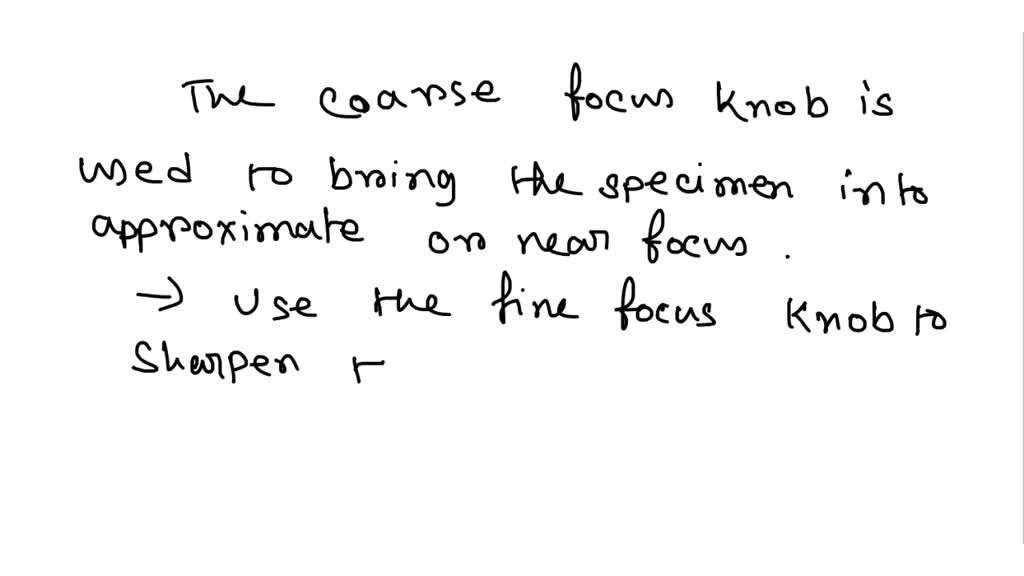 The coarse focus knob is
used to bring the specimen into
approximate or near focus.
→ Use the fine focus knob to
sharpen t